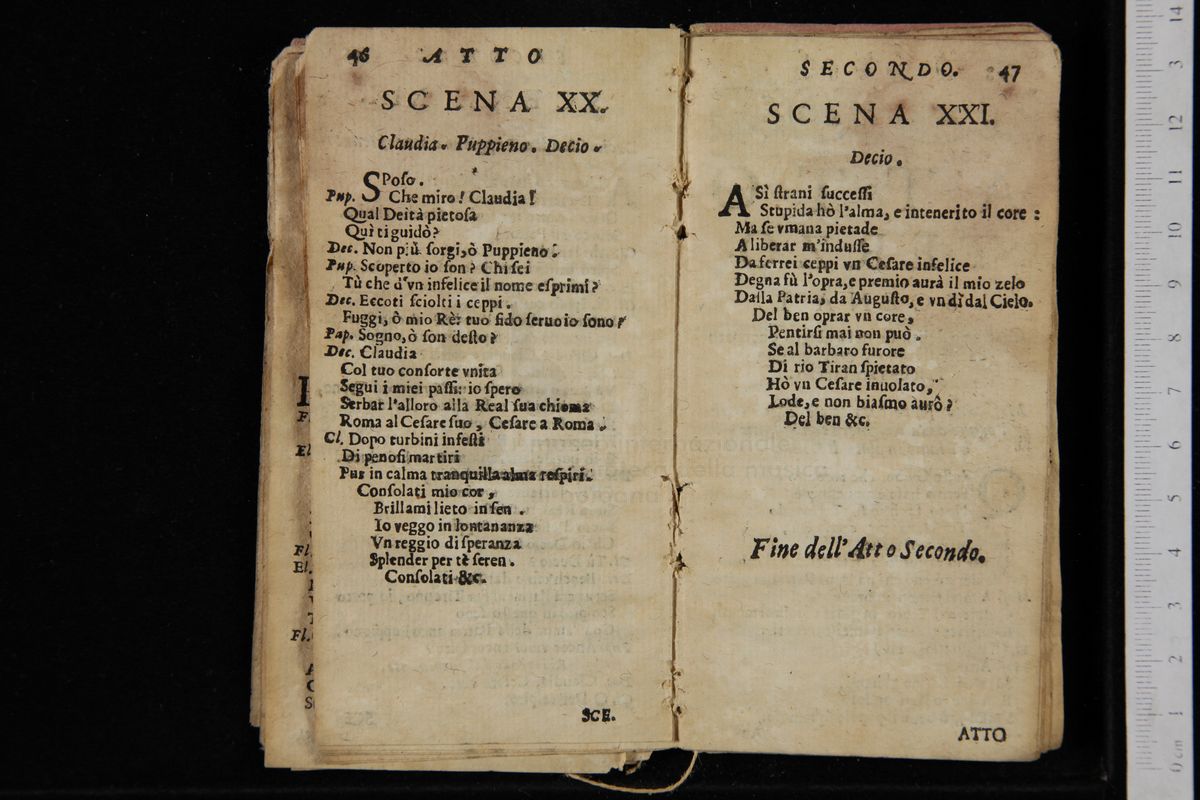 46 ATTO
SCENA XX.
Claudia. Puppieno. Decio.
SPoſo.
Pup. Che miro! Claudia!
Qual Deità pietoſa
Quì ti guidò?
Dec. Non più. ſorgi, ò Puppieno.
Pup. Scoperto io ſon? Chi ſei
Tù che d'vn infelice il nome eſprimi?
Dec. Eccoti ſciolti i ceppi.
Fuggi, ò mio Rè: tuo fido ſeruo io ſono?
Pap. Sogno, ò ſon deſto?
Dec. Claudia
Col tuo conſorte vnita
Segui i miei paſſi: io ſpero
Serbar l'alloro alla Real ſua chioma
Roma al Ceſare ſuo, Ceſare a Roma.
Cl. Dopo turbini infeſti
Di penoſi martiri
Pur in calma tranquilla alma reſpiri.
Conſolati mio cor,
Brillami lieto in ſen.
Io veggo in lontananza
Vn reggio di ſperanza
Splender per tè ſeren.
Conſolati &c.
SCE.
SECONDO. 47
SCENA XXI.
Decio.
ASì ſtrani ſucceſſi
Stupida hò l'alma, e intenerito il core:
Ma ſe vmana pietade
A liberar m'induſſe
Da ferrei ceppi vn Ceſare infelice
Degna fù l'opra, e premio aurà il mio zelo
Dalla Patria, da Auguſto, e vn dì dal Cielo.
Del ben oprar vn core,
Pentirſi mai non può.
Se al barbaro furore
Di rio Tiran ſpietato
Hò vn Ceſare inuolato,
Lode, e non biaſmo aurò?
Del ben &c.
Fine dell'Atto Secondo.
ATTO